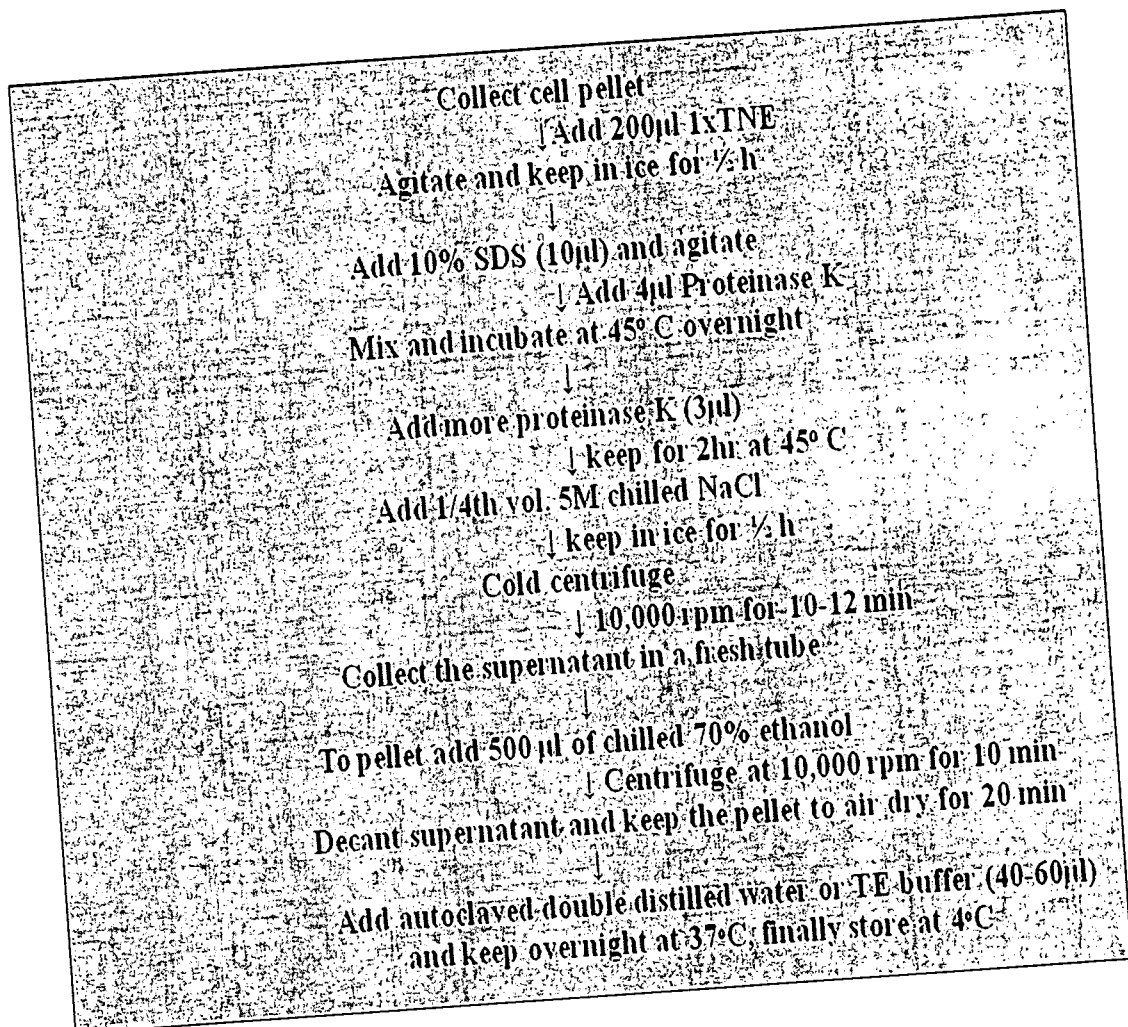 Collect cell pellet
↓ Add 200µl 1xTNE
Agitate and keep in ice for ½ h
↓
Add 10% SDS (10µl) and agitate
↓ Add 4µl Proteinase K
Mix and incubate at 45° C overnight
↓
Add more proteinase K (3µl)
↓ keep for 2hr at 45° C
Add 1/4th vol. 5M chilled NaCl
↓ keep in ice for ½ h
Cold centrifuge
↓ 10,000 rpm for 10-12 min
Collect the supernatant in a fresh tube
↓
To pellet add 500 µl of chilled 70% ethanol
↓ Centrifuge at 10,000 rpm for 10 min
Decant supernatant and keep the pellet to air dry for 20 min
↓
Add autoclaved double distilled water or TE buffer (40-60µl)
and keep overnight at 37°C, finally store at 4°C